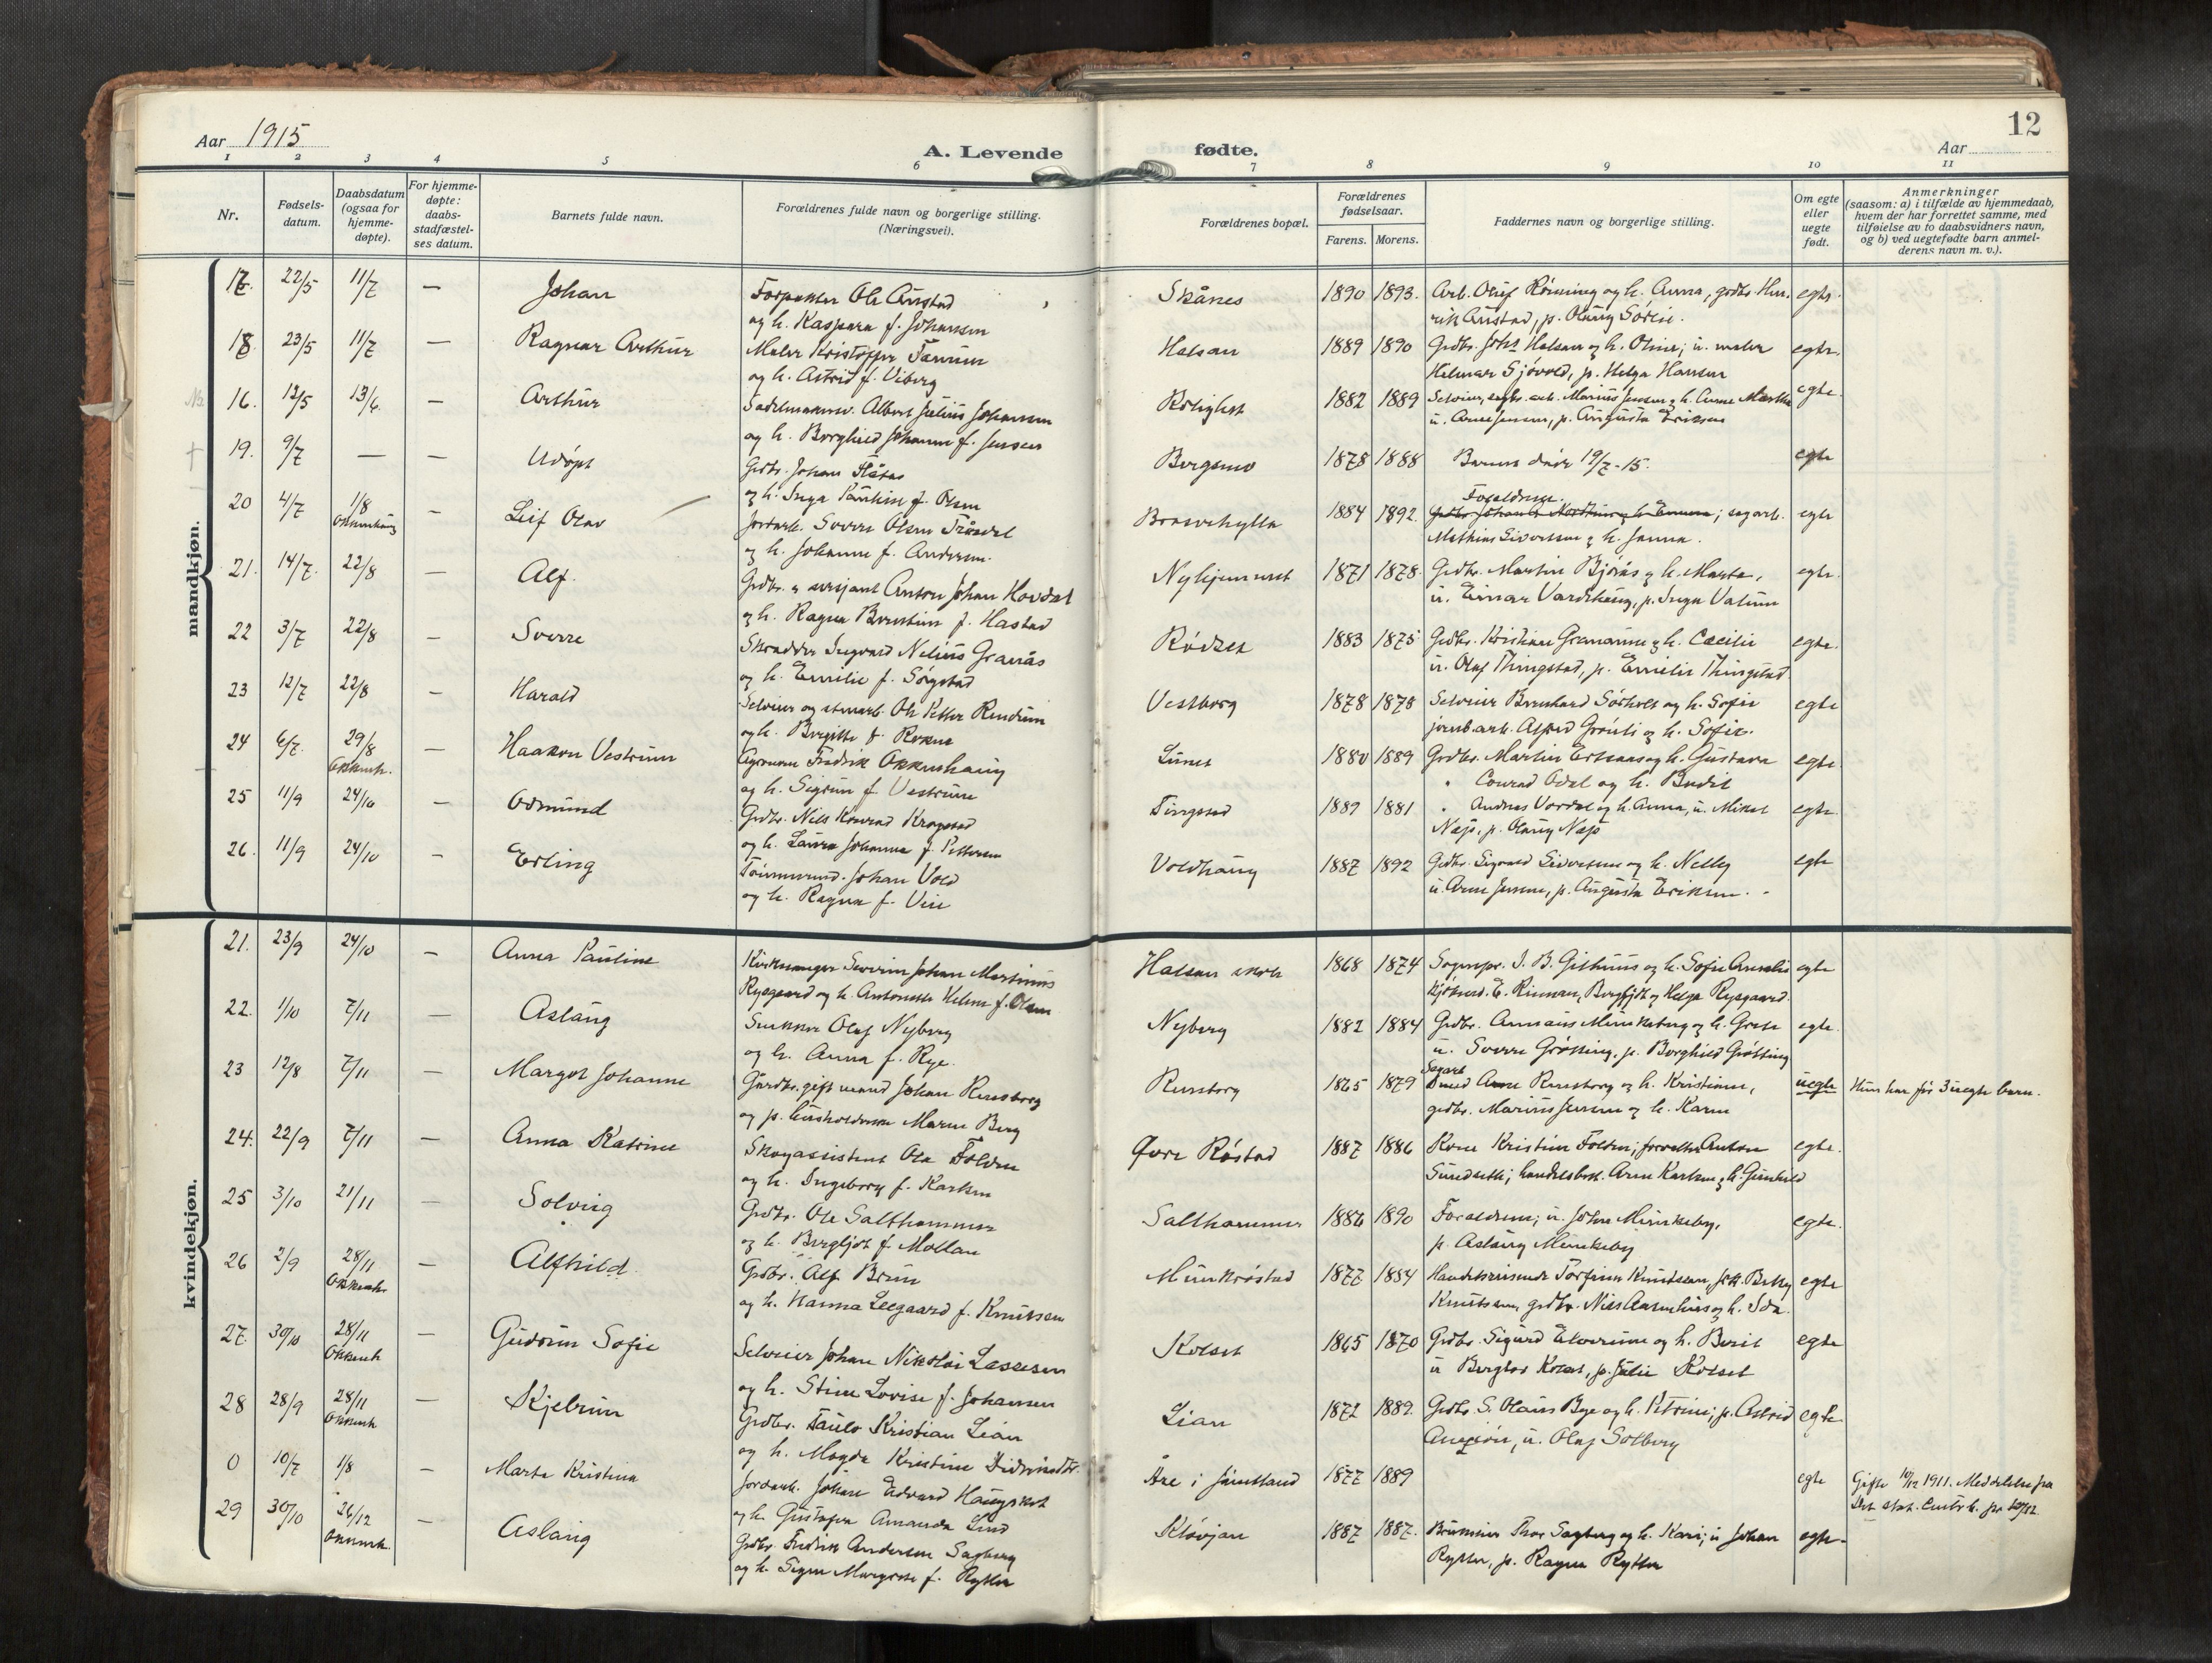 Aar 1915
A. Levende
fødte.
12
Aar
1 2 3 4 5 6 7 8 9 10 11
Nr.
Fødsels-
datum.
Daabsdatum
(ogsaa for
hjemme-
døpte).
For hjemme-
døpte:
daabs-
stadfæstel-
ses datum.
Barnets fulde navn.
Forældrenes fulde navn og borgerlige stilling.
(Næringsvei).
Forældrenes bopæl.
Forældrenes
fødselsaar.
Farens. Morens.
Faddernes navn og borgerlige stilling.
Om egte
eller
uegte
født.
Anmerkninger
(saasom: a) i tilfælde av hjemmedaab,
hvem der har forrettet samme, med
tilføielse av to daabsvidners navn,
og b) ved uegtefødte barn anmel-
derens navn m. v.).
mandkjøn.
17. 22/5 11/7 — Johan
Ole Anstad
og h. Kaspara f. Johansen
Skånes 1890 1893. Arb. Oluf Rönning og h. Anna, grdbr. Hen-
rik Anstad, p. Olaug egte.
18. 23/5 11/7 — Ragnar Arthur
Maler Kristoffer
og h. Astrid f. Viberg
Halsan 1889 1890 Grdbr. Johs Halsan og h. Oline; u. maler
Helmer Sjövold, p. Helga Hansen egte.
16. 12/5 13/6. — Arthur
Sadelmakersv. Albert Julius Johansen
og h. Borghild Johanne f. Jensen
Rolighet 1882 1889 Marius Jensen og h. Anne Martha
u. Arne Jensen, p. Augusta Eriksen egte.
19. 9/7 — — Udøpt
Grdbr. Johan
og h. Inga f. Olsen
Bergsmo 1878 1888 Barnet døde 19/7-15. egte
20 4/7 1/8 Okkenhaug — Leif Olav
Jordarb. Sverre Olsen
og h. Johanne f. Andersen.
1884 1892. Forældrene.
; sagarb.
Mathias Sivertsen og h. Janna. egte
21. 14/7. 22/8 — Alf.
Grdbr. og sersjant Anton Johan Hovdal
og h. Ragna f. Hastad
1871 1878. Grdbr. Martin Bjørås og h. Marta,
u. Einar Vardehaug, p. Inga Valum egte.
22 3/7 22/8 — Sverre
Skrædder Ingvard Nelius Granås
og h. Emilie f. Sørgstad
Rødset 1883 1875 Grdbr. Kristian og h. Cæcilie
u. Olaf Thingstad, p. Emilie Thingstad. egte.
23 12/7 22/8 — Harald
Selveier og Ole Petter Rendum
og h. Bergitte f.
Vestborg 1878 1878 Selveier Bernhard og h. Sofie
jernb.arb. Alfred Grönli og h. Sofie. egte
24 6/7. 29/8 Okkenh. — Haakon Vestrum
Agronom Fredrik Okkenhaug
og h. Sigrun f. Vestrum
Lunet 1880 1889 Grdbr. Martin og h. Gustava
" Conrad og h. Burit egte.
25 11/9 24/10 — Odmund
Grdbr. Nils Konrad Kragstad
og h. Laura Johanna f. Pettersen
Tingstad 1889 1881 " Andreas Vordal og h. Anna, u. Mikal
Næss, p. Olaug Næss egte.
26. 11/9 24/10 — Erling
Tömmermand Johan Vold
og h. Ragna f.
Voldhaug 1887 1892 Grdbr. Sigvard Sivertsen og h. Nelly
u. Arne Jensen, p. Augusta Eriksen. egte
kvindekjøn.
21. 23/9 24/10 — Anna Pauline
Kirkesanger Severin Johan Martinus
Rysgaard og h. Antonette Helene f. Olsen
Halsan skole 1868 1874 Sognepr. I. B. og h. Sofie Amalie
E. Rinnan, Bergljot og Helga Rysgaard. egte
22. 1/10 7/11 — Aslaug
Snekker Olaf Nyberg
og h. Anna f. Rye.
Nyberg 1882 1884 Grdbr. Munkeberg og h. Grete
u. Sverre Grötting, p. Borghild Grötting egte.
23 12/8 7/11 — Margot Johanne
Gardbr. gift mand Johan Renstorg
og p. husholderske Maren Berg
Renstorg 1865 1879 Renstorg og h. Kristianne,
grdbr. Marius Jensen og h. Karen uegte Hun har før 3 uegte barn.
24. 22/9 7/11 — Anna Katrine
Skogassistent Ole Folden
og h. Ingeborg f. Karlsen
Övre Røstad 1887 1886 Kone Kristine Folden; Anton
Sundseth; handelsbest. Arne Karlsen og h. Gunhild egte.
25 3/10 21/11 — Solveig
Grdbr. Ole Salthammer
og h. Bergljot f. Mollan
Salthammer 1886 1890 Forældrene; u. Johan Munkeby,
p. Aslaug Munkeby egte.
26 2/9 28/11 Okkenh. — Alfhild.
Grdbr. Alf Brun
og h. Hanna Leegaard f. Knutsen
Munkrøstad 1877 1884 Handelsreisende Torfinn Knutsen, frk. Betty
Knutsen, grdbr. Nils og h. Ida. egte
27. 30/10 28/11 Okkenh — Gudrun Sofie
Selveier Johan Nikolai Lassesen
og h. Stine Lovise f. Johansen
Kolset 1865 1870 Grdbr. Sigurd Elverum og h. Berit
u Kolset, p. Julie Kolset egte
28 28/9 28/11 Okkenh — Skjebrun
Grdbr. Paulo Kristian Lian
og h. Magda Kristine Didriksdtr.
Lian 1872 1889. Grdbr. S. Olaus Bye og h. Petrine; p. Astrid
u. Olaf Solberg egte
0 10/7 1/8 — Marta Kristina
Jordarb. Johan Edvard Haugskot
og h. Gustafva Amanda Lind
Åre i Jämtland 1877 1889 egte Gifte 10/12 1911. Meddelelse fra
Det stat. Centrb.
29 30/10 26/12 Okkenh. — Aslaug
Grdbr. Fredrik Andersen Sagberg
og h. Signe Margrete f. Rytter
Kløvjan 1887 1887. Thor Sagberg og h. Kari; u Johan
Rytter, p. Ragna Rytter egte.